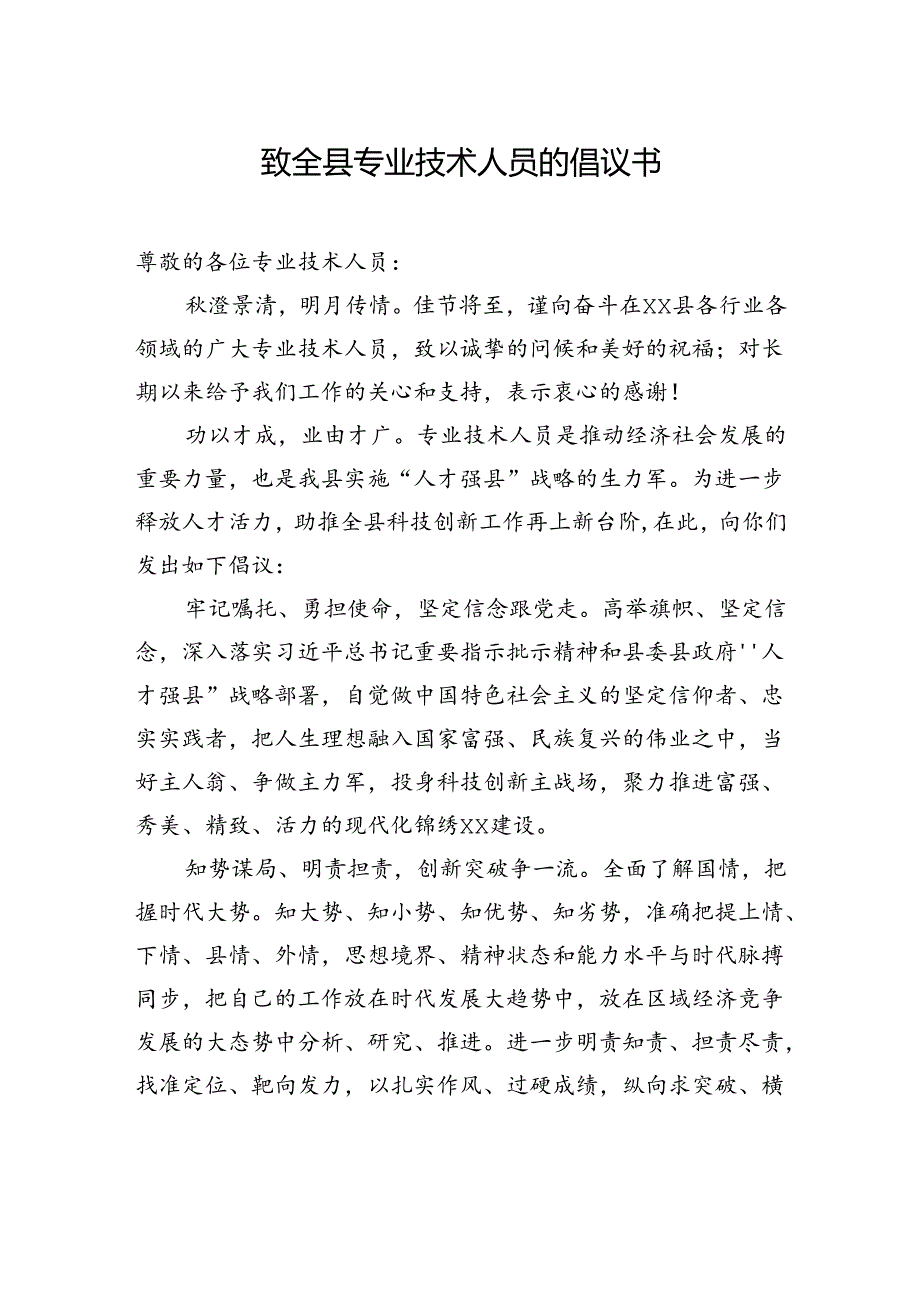 致全县专业技术人员的倡议书
尊敬的各位专业技术人员：
秋澄景清，明月传情。佳节将至，谨向奋斗在XX县各行业各
领域的广大专业技术人员，致以诚挚的问候和美好的祝福；对长
期以来给予我们工作的关心和支持，表示衷心的感谢！
功以才成，业由才广。专业技术人员是推动经济社会发展的
重要力量，也是我县实施“人才强县”战略的生力军。为进一步
释放人才活力，助推全县科技创新工作再上新台阶,在此，向你们
发出如下倡议：
牢记嘱托、勇担使命，坚定信念跟党走。高举旗帜、坚定信
念，深入落实习近平总书记重要指示批示精神和县委县政府''人
才强县”战略部署，自觉做中国特色社会主义的坚定信仰者、忠
实实践者，把人生理想融入国家富强、民族复兴的伟业之中，当
好主人翁、争做主力军，投身科技创新主战场，聚力推进富强、
秀美、精致、活力的现代化锦绣XX建设。
知势谋局、明责担责，创新突破争一流。全面了解国情，把
握时代大势。知大势、知小势、知优势、知劣势，准确把提上情、
下情、县情、外情，思想境界、精神状态和能力水平与时代脉搏
同步，把自己的工作放在时代发展大趋势中，放在区域经济竞争
发展的大态势中分析、研究、推进。进一步明责知责、担责尽责，
找准定位、靶向发力，以扎实作风、过硬成绩，纵向求突破、横